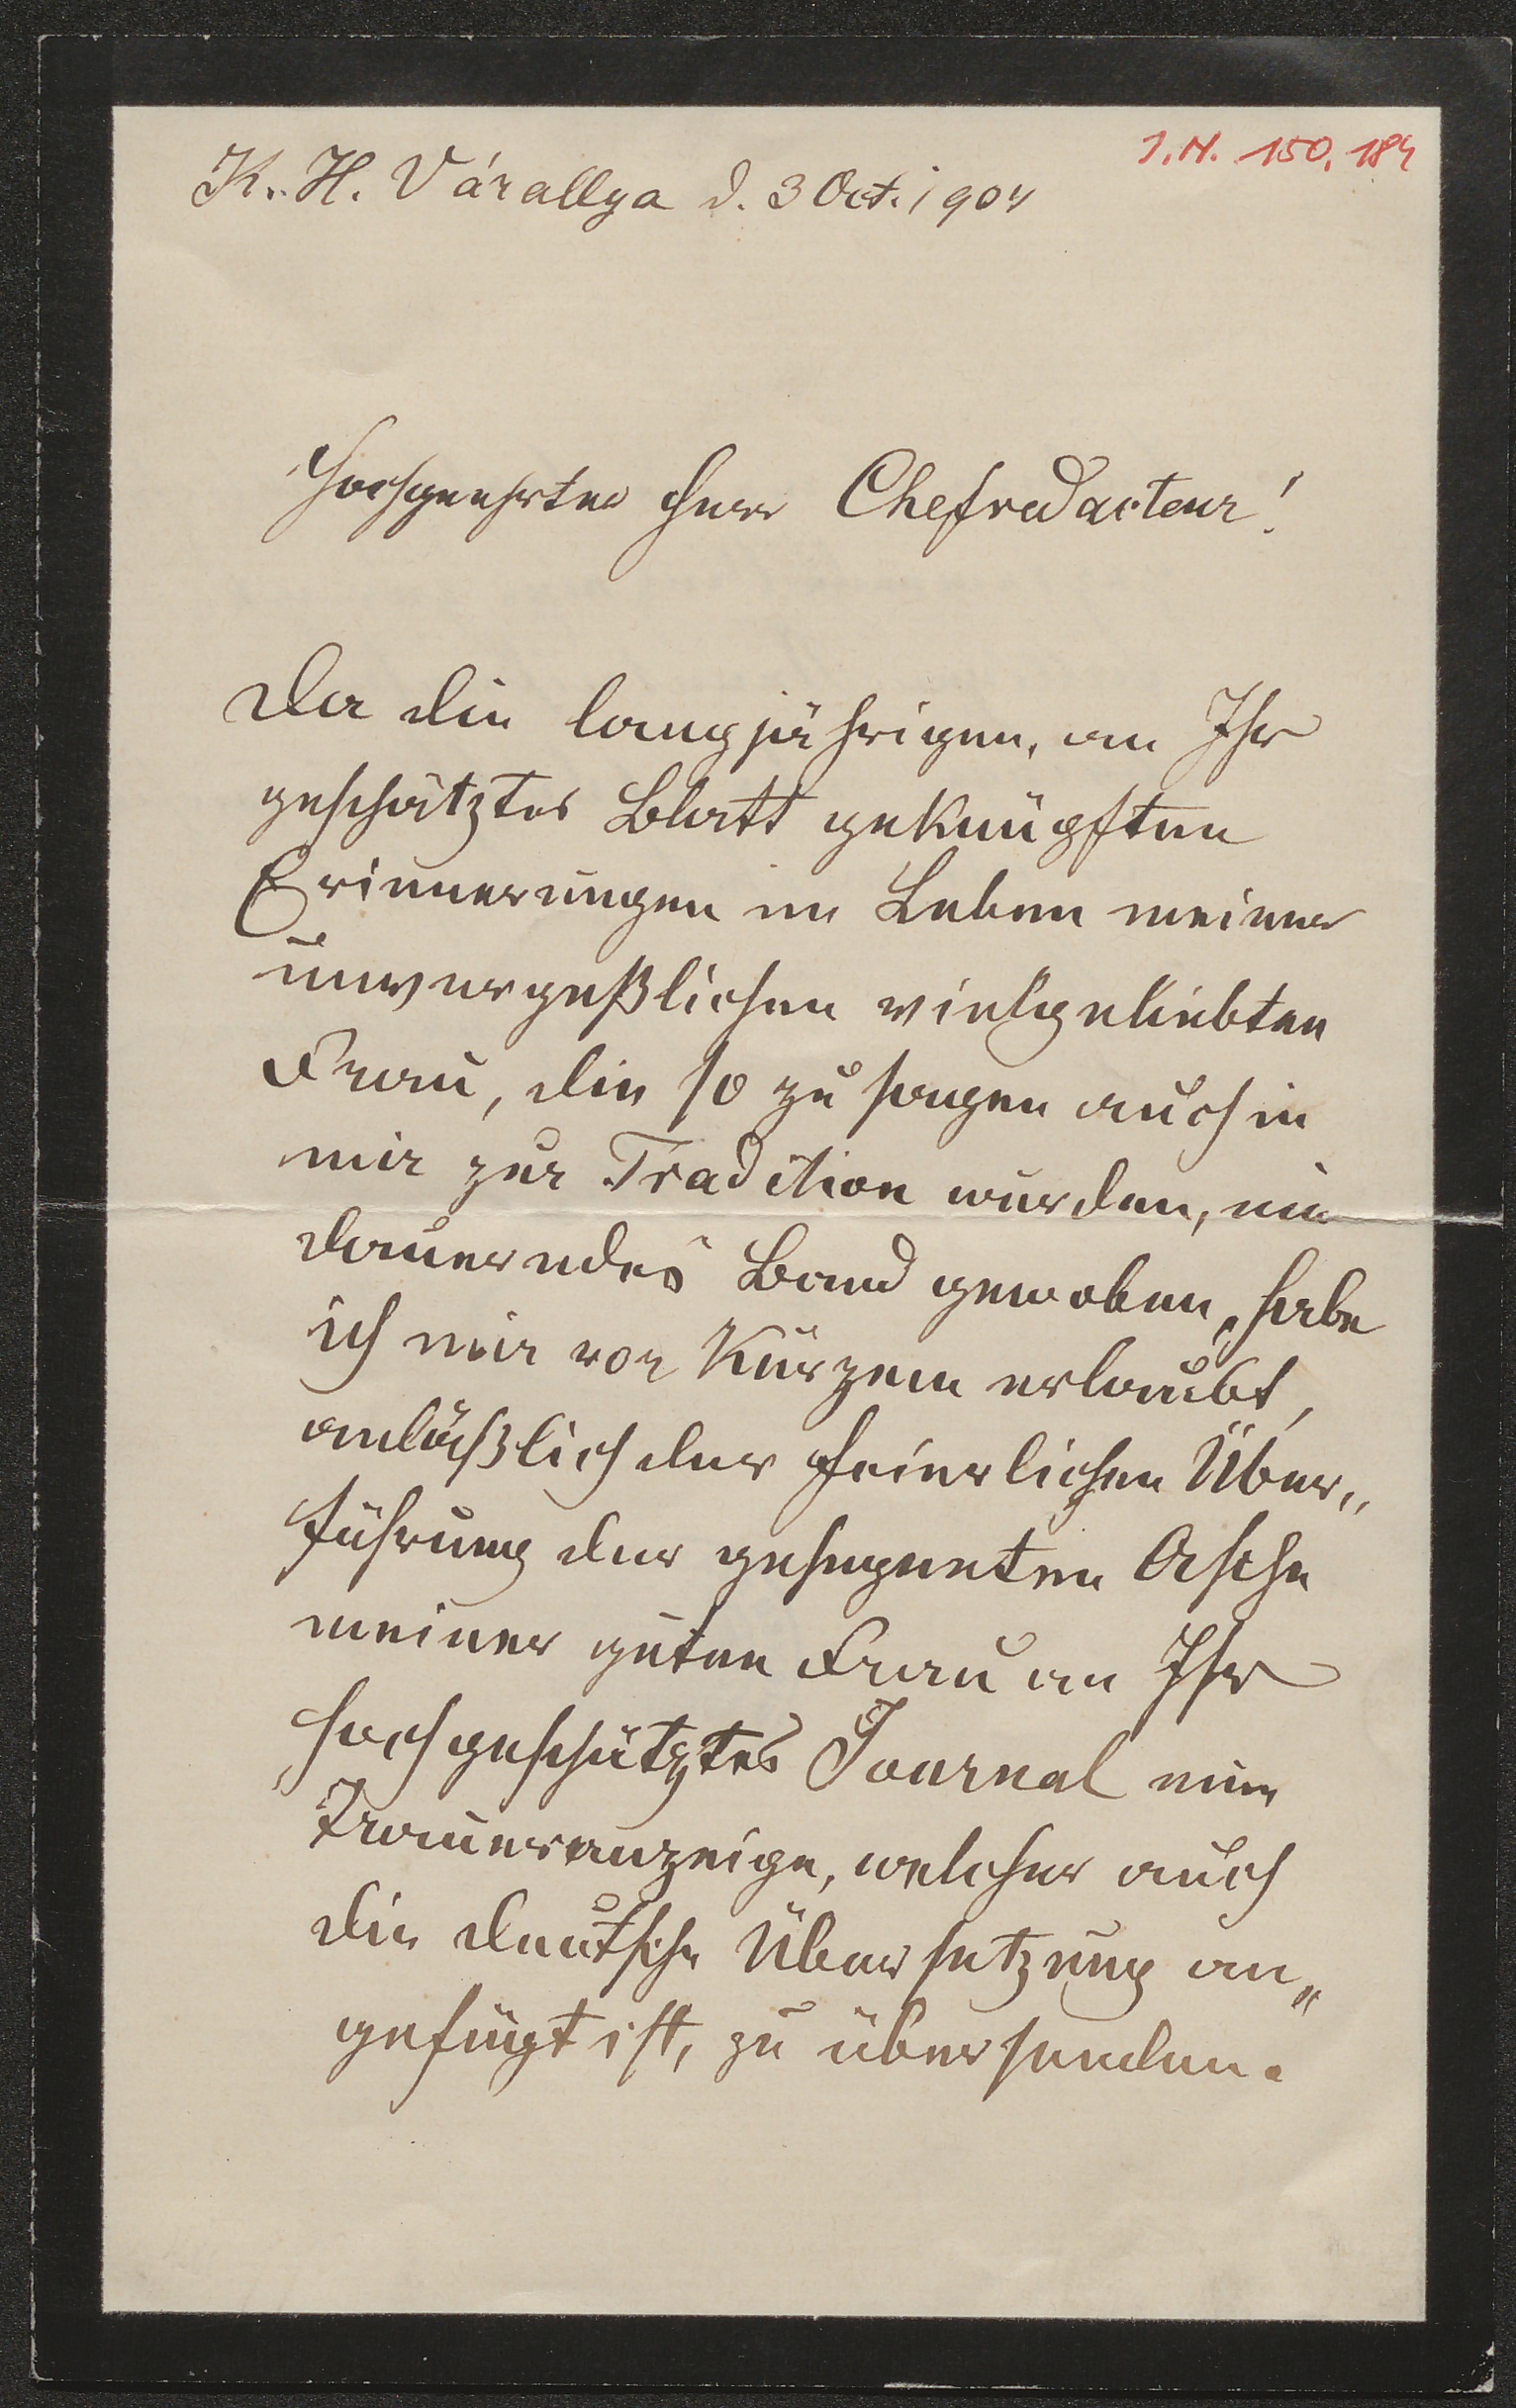 J.N. 150.184
K. H. Várallya d. 3 Oct. 1904
Hochgeehrter Herr Chefredacteur!
Da die langjährigen, an Ihr
geschätztes Blatt geknüpften
Erinnerungen im Leben meiner
unvergeßlichen vielgeliebten
Frau, die so zu sagen auch in
mir zur Tradition wurden, ein
dauerndes Band gewoben, habe
ich mir vor Kurzem erlaubt,
anläßlich der feierlichen Über„
führung der gesegneten Asche
meiner guten Frau an Ihr
hochgeschätztes Journal eine
Traueranzeige, welcher auch
die deutsche Übersetzung an„
gefügt ist, zu übersenden.